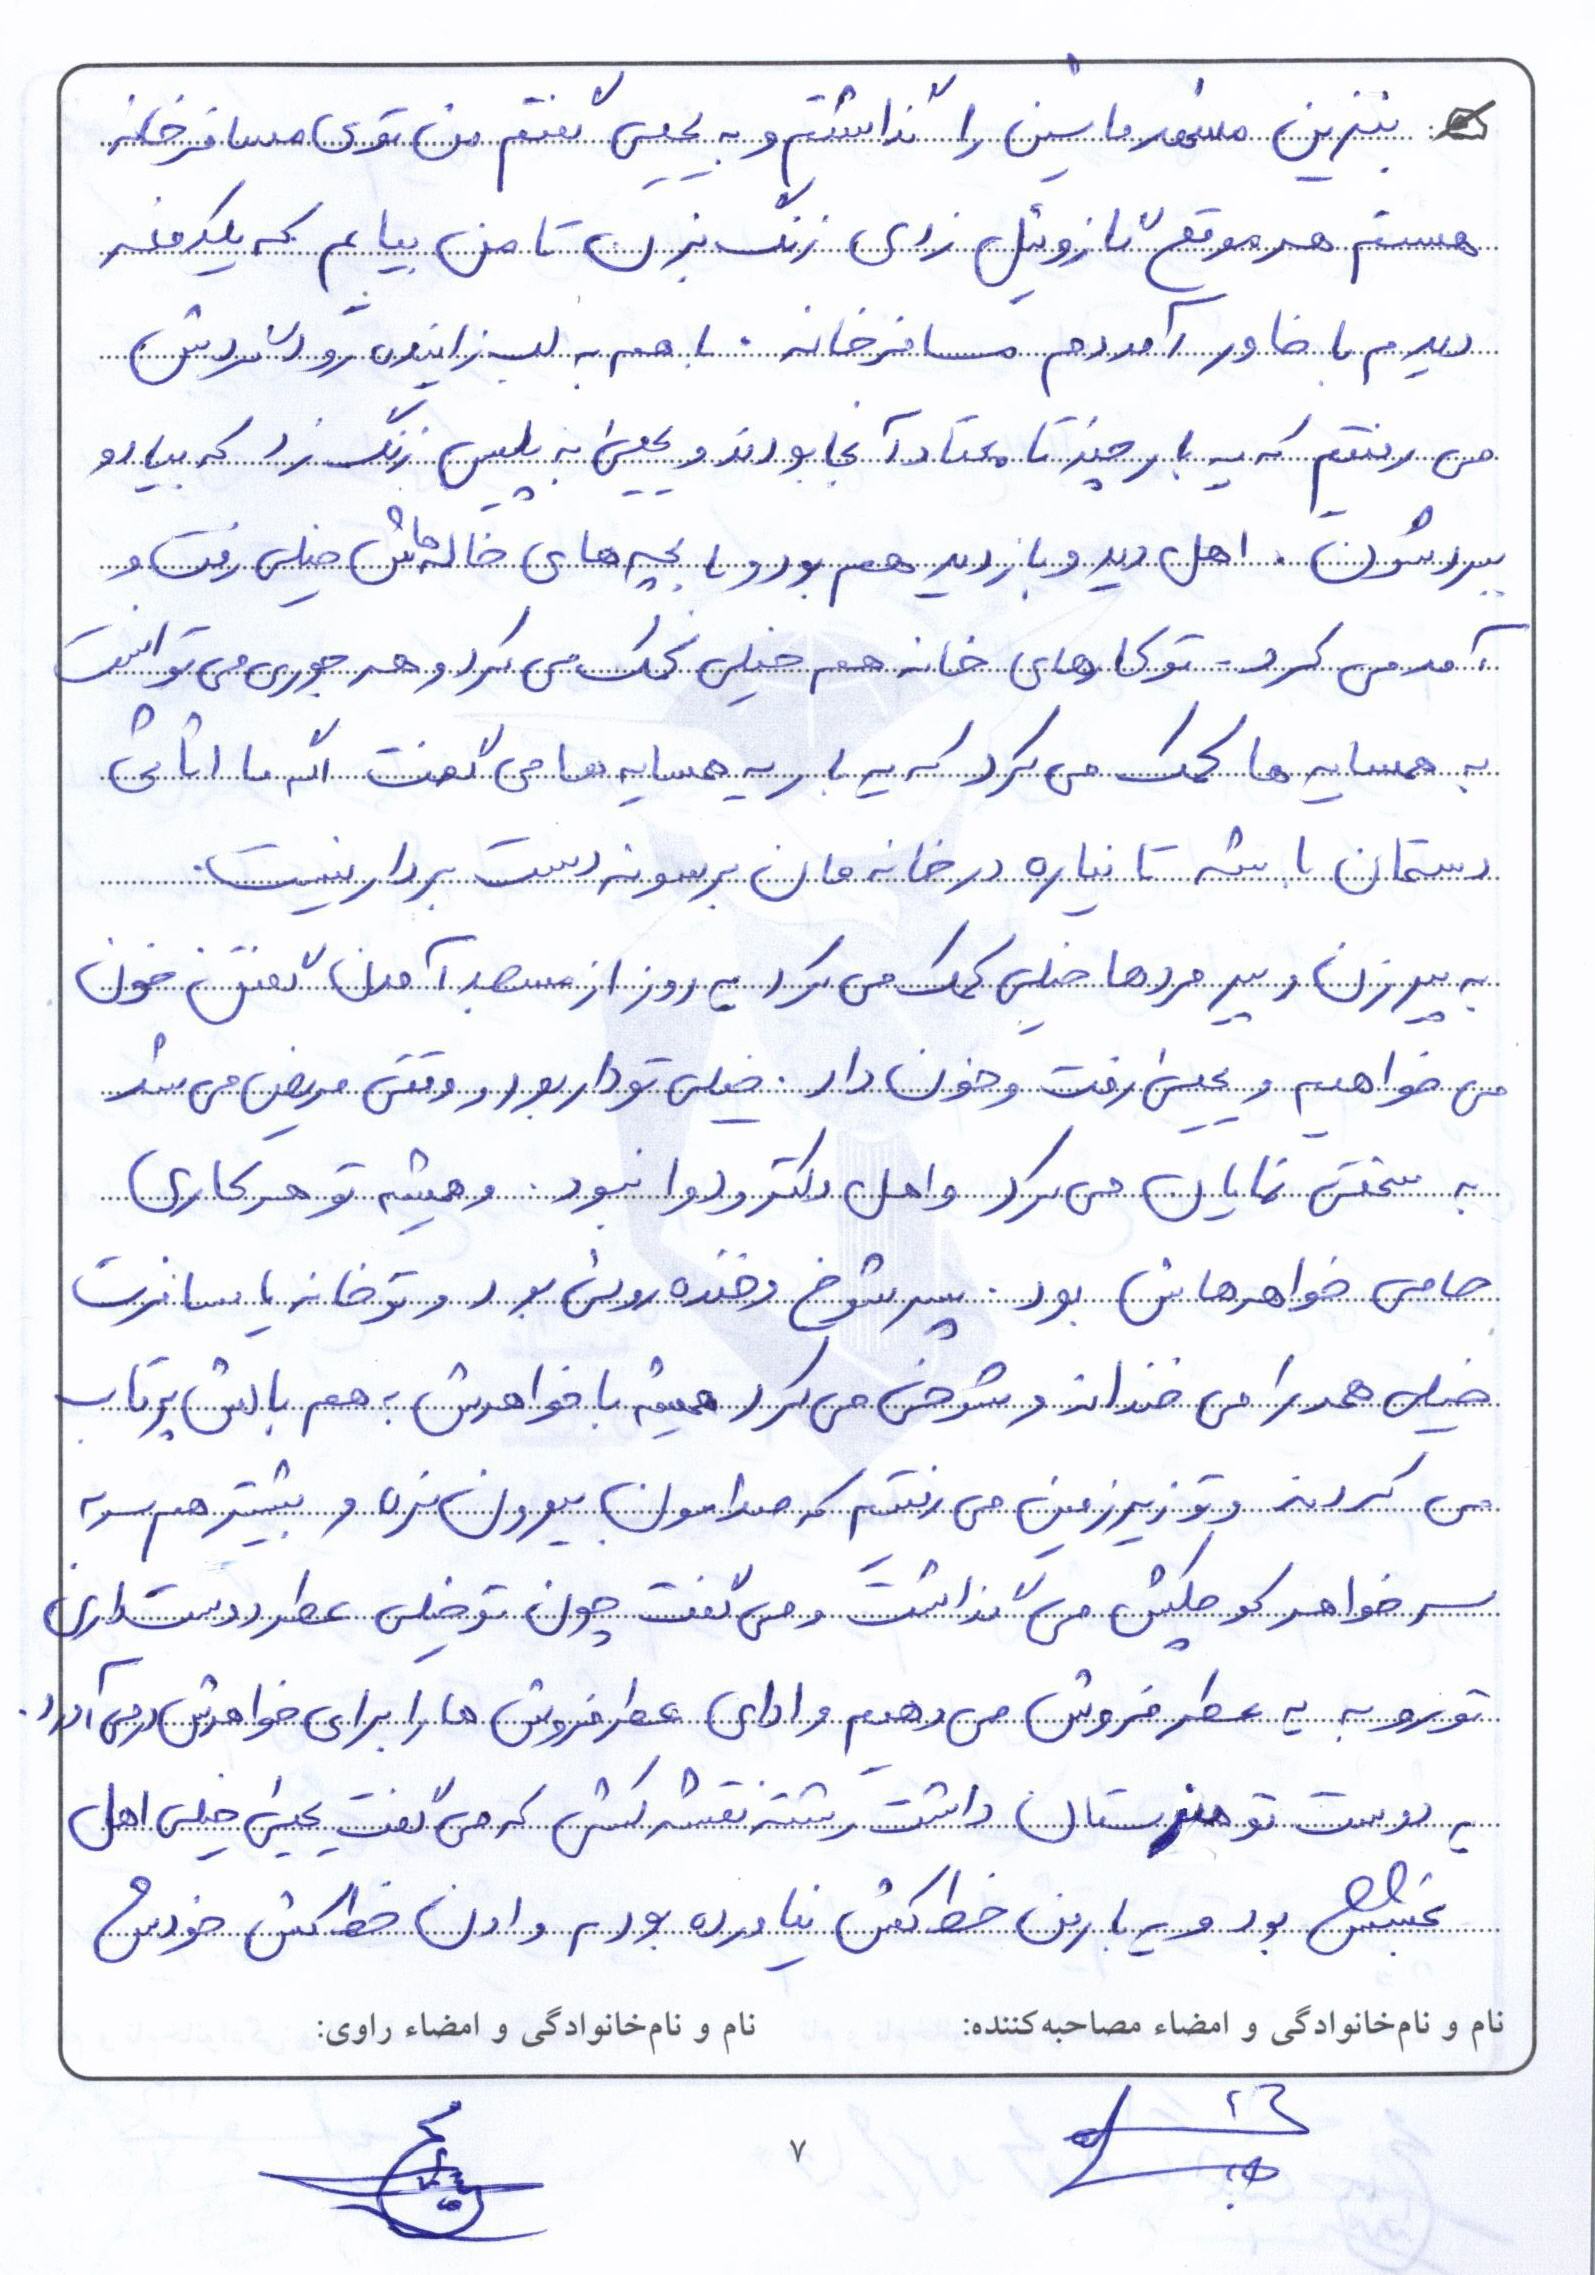 بنزین مشهد ماشین را گذاشتم و به یحیی گفتم من توی مسافرخانه
هستم هر موقع گازوئیل زدی زنگ بزن تا من بیایم که یکدفعه
دیدم با خاور آمد دم مسافرخانه . با هم به لب زاینده رود گردش
می رفتیم که یه بار چند تا معتاد آنجا بودند و یحیی به پلیس زنگ زد که بیاد و
ببردشون . اهل دید و بازدید هم بود و با بچه های خاله هاش خیلی رفت و
آمد می کرد - تو کارهای خانه هم خیلی کمک می کرد و هر جوری می توانست
به همسایه ها کمک می کرد که یه بار یه همسایه ها می گفت اگه ما اثاثی
دستمان باشه تا نیاره در خانه مان برسونه دست بردار نیست .
به پیرزن و پیرمردها خیلی کمک می کرد یه روز از مسجد آمدن گفتن خون
می خواهیم و یحیی رفت و خون داد . خیلی تودار بود و وقتی مریض می شد
به سختی نمایان می کرد و اهل دکتر و دوا نبود . و همیشه تو هر کاری
حامی خواهرهاش بود . پسر شوخ و خنده رویی بود و تو خانه یا مسافرت
خیلی همه را می خنداند و شوخی می کرد همیشه با خواهرش به هم بالش پرتاب
می کردند و تو زیرزمین می رفتیم که صداسون بیرون نره و بیشتر هم سر به
سر خواهر کوچکیش می گذاشت و می گفت چون تو خیلی عطر دوست داری
تو رو به یه عطر فروش می دهیم و ادای عطر فروش ها را برای خواهرش در می آورد .
یه دوست تو هنرستان داشت رشته نقشه کشی که می گفت یحیی خیلی اهل
بخشش بود و یه بار من خط کش نیاورده بودم و اون خط کش خودش
نام و نام‌خانوادگی و امضاء مصاحبه‌کننده: نام و نام‌خانوادگی و امضاء راوی:
۷